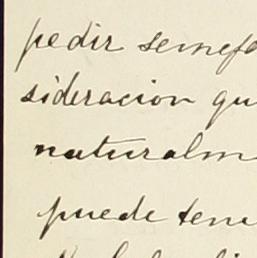 pedir semeje
sideracion qu
naturalm
puede tene